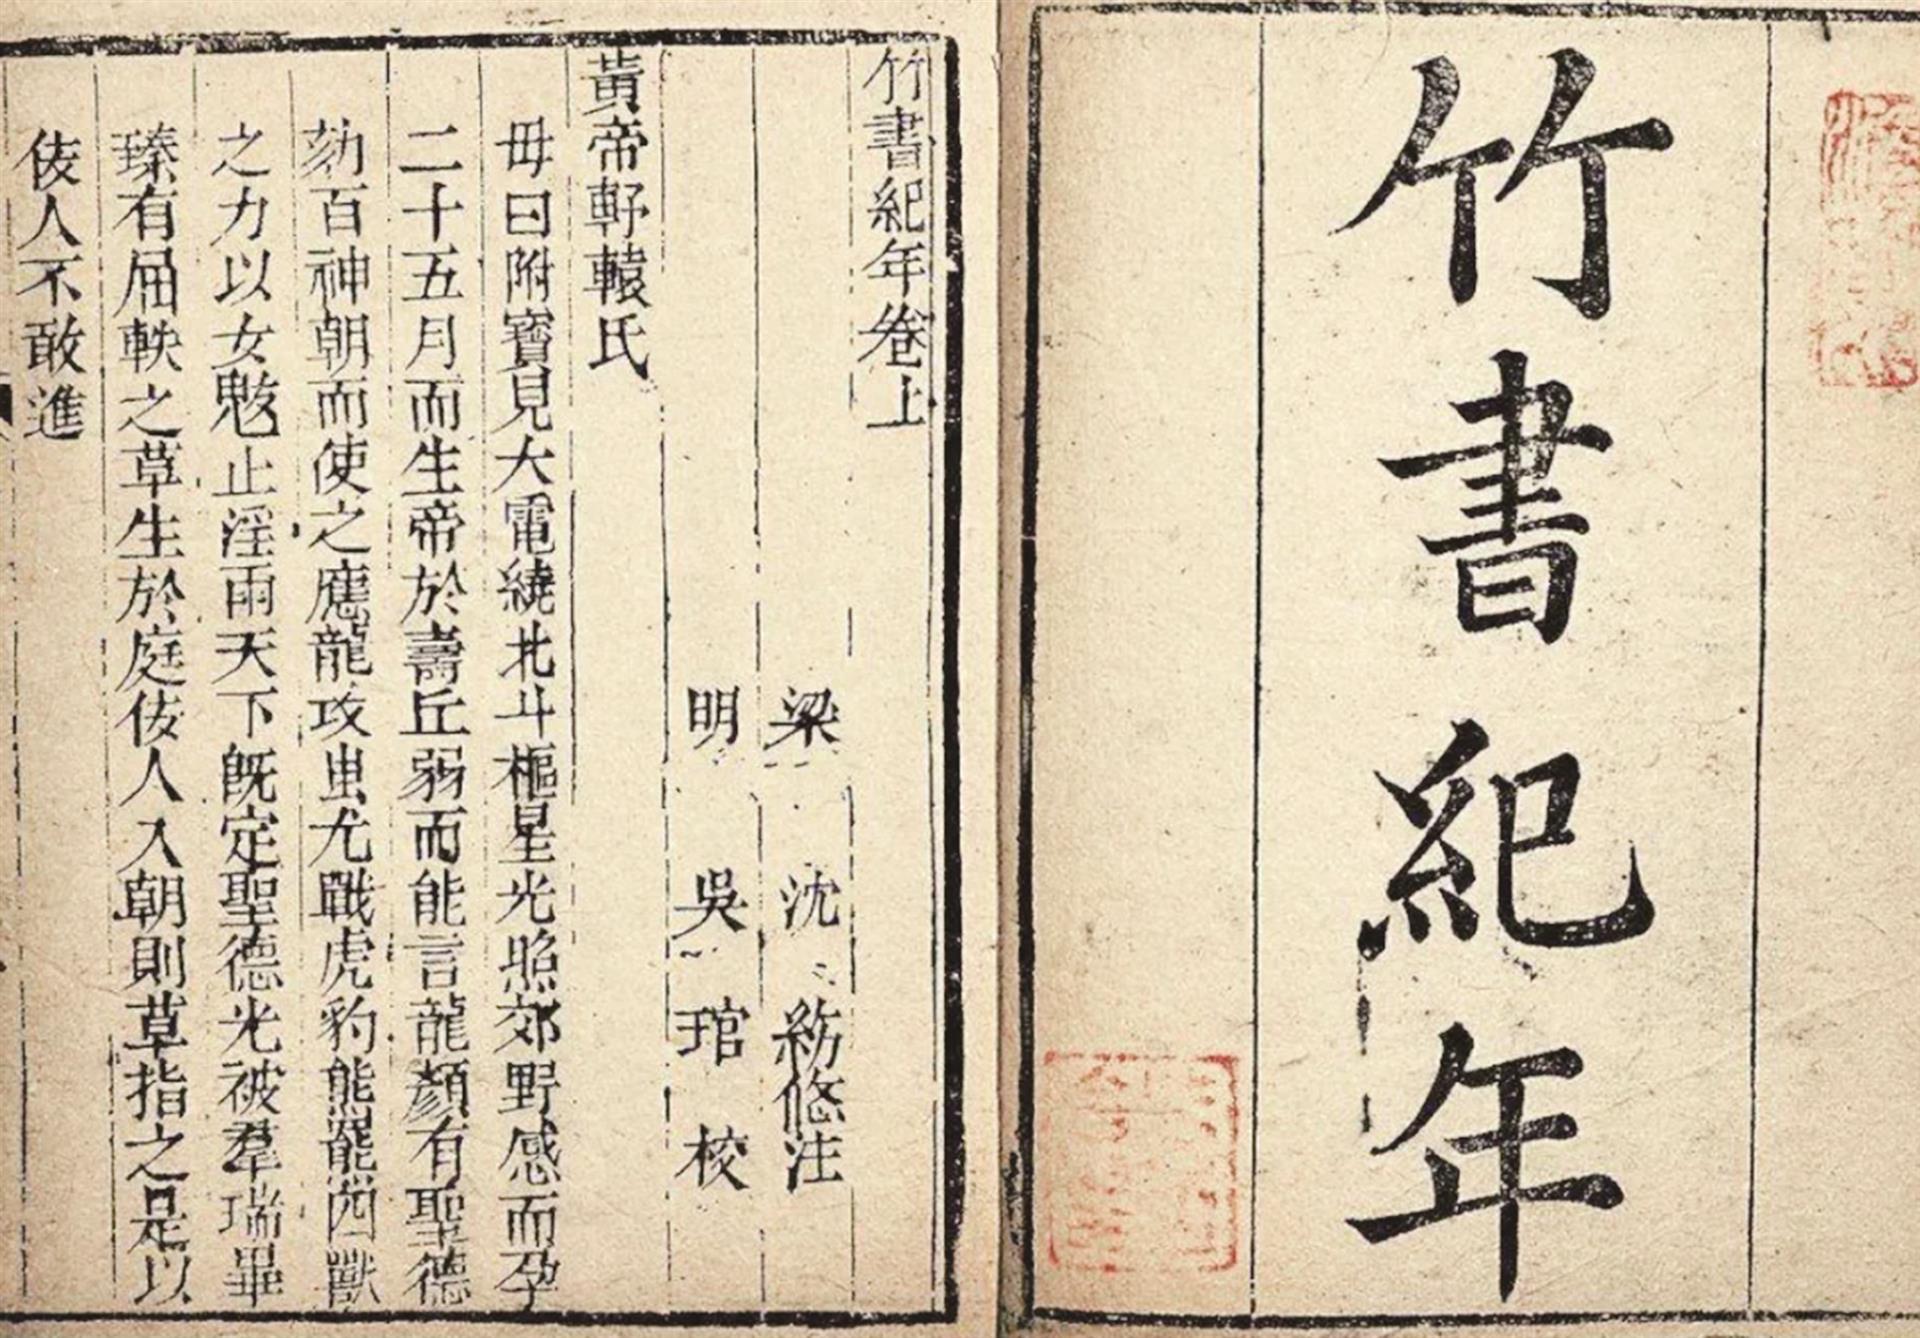 竹書紀年
竹書紀年卷上
梁 沈 約 修注
明 吳 琯 校
黃帝軒轅氏
母曰附寶見大電繞北斗樞星光照郊野感而孕
二十五月而生帝於壽丘弱而能言龍顏有聖德
劾百神朝而使之應龍攻蚩尤戰虎豹熊羆四獸
之力以女魃止淫雨天下既定聖德光被羣瑞畢
臻有屈軼之草生於庭佞人入朝則草指之是以
佞人不敢進